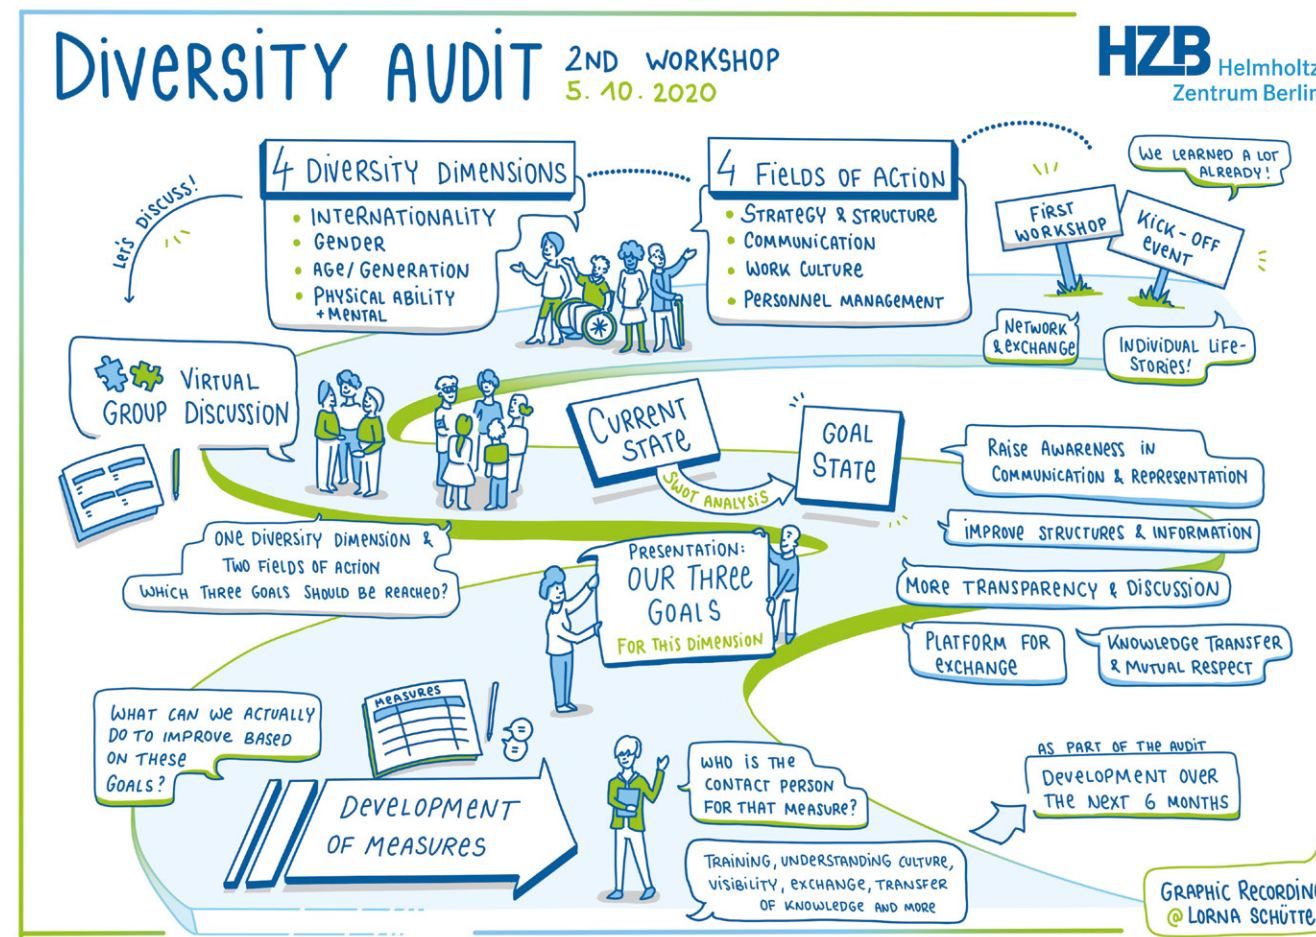 DIVERSITY AUDIT
2ND WORKSHOP
5.10.2020
HZB Helmholtz
Zentrum Berlin
LET'S DISCUSS!
4 DIVERSITY DIMENSIONS
• INTERNATIONALITY
• GENDER
• AGE/GENERATION
• PHYSICAL ABILITY
+ MENTAL
4 FIELDS OF ACTION
• STRATEGY & STRUCTURE
• COMMUNICATION
• WORK CULTURE
• PERSONNEL MANAGEMENT
FIRST
WORKSHOP
KICK-OFF
EVENT
WE LEARNED A LOT
ALREADY!
NETWORK
& EXCHANGE
INDIVIDUAL LIFE-
STORIES!
VIRTUAL
GROUP DISCUSSION
CURRENT
STATE
SWOT ANALYSIS
GOAL
STATE
RAISE AWARENESS IN
COMMUNICATION & REPRESENTATION
IMPROVE STRUCTURES & INFORMATION
MORE TRANSPARENCY & DISCUSSION
PLATFORM FOR
EXCHANGE
KNOWLEDGE TRANSFER
& MUTUAL RESPECT
ONE DIVERSITY DIMENSION &
TWO FIELDS OF ACTION
WHICH THREE GOALS SHOULD BE REACHED?
PRESENTATION:
OUR THREE
GOALS
FOR THIS DIMENSION
WHAT CAN WE ACTUALLY
DO TO IMPROVE BASED
ON THESE
GOALS?
MEASURES
DEVELOPMENT
OF MEASURES
WHO IS THE
CONTACT PERSON
FOR THAT MEASURE?
TRAINING, UNDERSTANDING CULTURE,
VISIBILITY, EXCHANGE, TRANSFER
OF KNOWLEDGE AND MORE
AS PART OF THE AUDIT
DEVELOPMENT OVER
THE NEXT 6 MONTHS
GRAPHIC RECORDING
@ LORNA SCHÜTTE